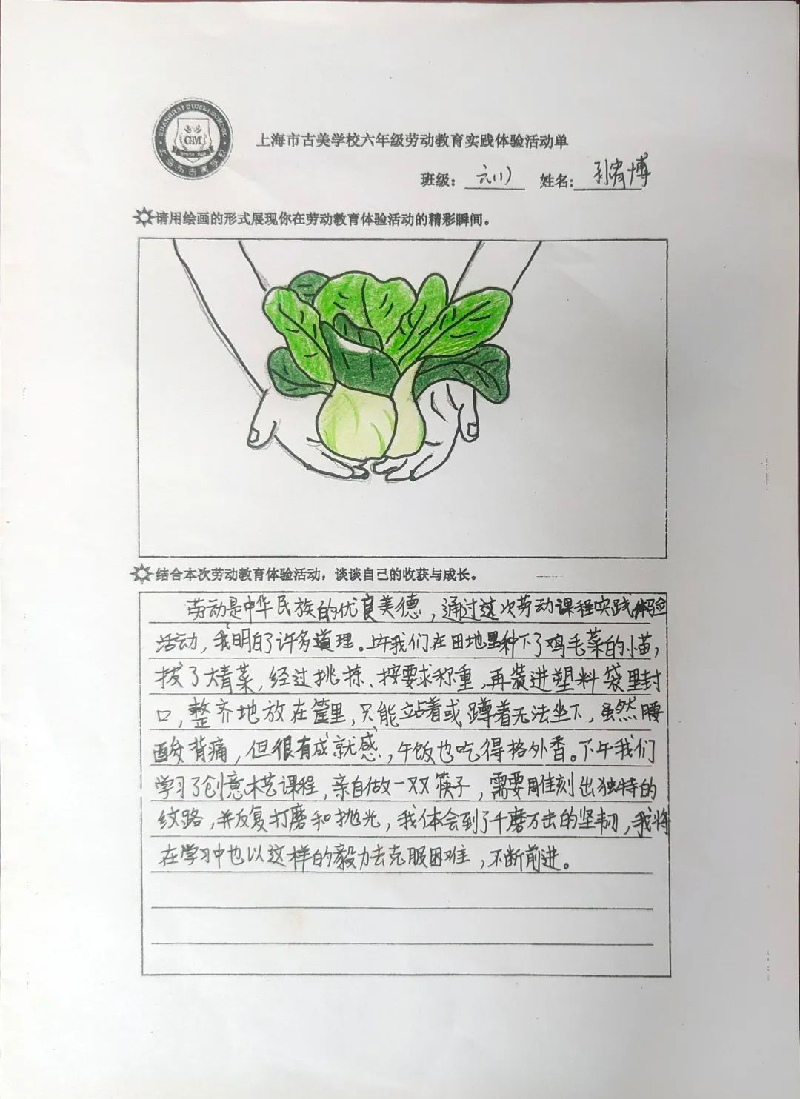 上海市古美学校六年级劳动教育实践体验活动单
班级：六(1) 姓名：刘宏博
请用绘画的形式展现你在劳动教育体验活动的精彩瞬间。
结合本次劳动教育体验活动，谈谈自己的收获与成长。
劳动是中华民族的优良美德，通过这次劳动课程实践体验
活动，我明白了许多道理。上午我们在田地里种下了鸡毛菜的小苗，
拔了大青菜，经过挑拣、按要求称重，再装进塑料袋里封
口，整齐地放在筐里，只能站着或蹲着无法坐下，虽然腰
酸背痛，但很有成就感，午饭也吃得格外香。下午我们
学习了创意木艺课程，亲自做一双筷子，需要用锥刻出独特的
纹路，并反复打磨和抛光，我体会到了千磨万击的坚韧，我将
在学习中也以这样的毅力去克服困难，不断前进。